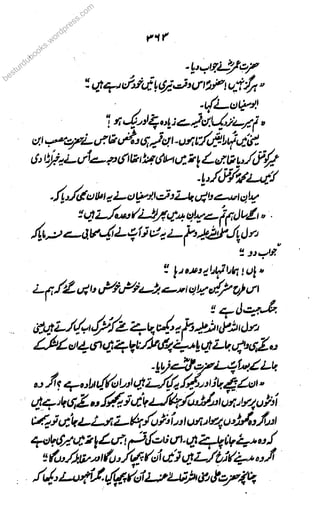 besturdubooks.wordpress.com
۳۶۳
حضرت عمرؓ نے جواب دیا۔
"ہرگز نہیں! حضورؐ اس وقت تیری باتیں خود سن رہے ہیں"
ابو سفیان نے کہا۔
"تم میرے نزدیک ابن قمیہ سے زیادہ سچے اور نیک ہو!"
یعنی میں تمہارا یقین کرتا ہوں۔ ابن قمیہ ہی وہ شخص تھا جس نے حضرت مصعب ابن
عمیر کو قتل کر دیا تھا جن کے ہاتھ میں اسلامی جھنڈا تھا اسی وجہ سے اُس نے یہ خبر اڑا دی
کہ میں نے محمدؐ کو قتل کر دیا۔
میدان احد سے واپس جاتے وقت ابو سفیان نے یہ اعلان بھی کر دیا کہ۔
"اگلے سال ہم تم سے میدان بدر میں پھر لڑنے کا وعدہ کرتے ہیں"
رسول پاک صلی اللہ علیہ وسلم نے یہ سنا تو آپ نے ایک صحابی سے فرمایا کہ
جواب دو"
"ہاں! ہمارا تمہارا یہ وعدہ رہا"
اس طرح مشرکین میدان احد سے بڑے خوش خوش واپس گئے کہ ہم نے
جنگ جیت لی ہے"
رسول اللہ صلی اللہ علیہ وسلم یہ دیکھنا چاہتے تھے کہ مشرک اب کیا کرتے ہیں یعنی
وہ مکے ہی واپس جاتے ہیں یا مدینے پر بھی حملہ کرنا چاہتے ہیں اسی لیے ان کے لشکر کے
جانے کے بعد آپ نے حضرت علیؓ سے فرمایا۔
"ان کے پیچھے جاؤ اور دیکھو کہ یہ کیا کرتے ہیں اور ان کا کیا ارادہ ہے؟ اگر وہ
اونٹوں پر سوار ہوں اور گھوڑوں کو ہنکاتے لے جائیں تو یہ سمجھو کہ وہ مکے ہی جا رہے ہیں
اور اگر وہ گھوڑوں پر سوار ہوں اور اونٹوں کو ہنکاتے ہوئے لے جائیں تو یہ سمجھنا
کہ وہ مدینے جانا چاہتے ہیں۔ اس ذات کی قسم! جس کے ہاتھ میں میری جان ہے
اگر وہ مدینے کا رخ کرتے ہیں تو میں اُن کا پیچھا کروں گا اور مقابلہ کروں گا"
چنانچہ حضرت علی رضی اللہ تعالےٰ عنہ نے اُن کا پیچھا کیا، مگر انہوں نے دیکھا کہ